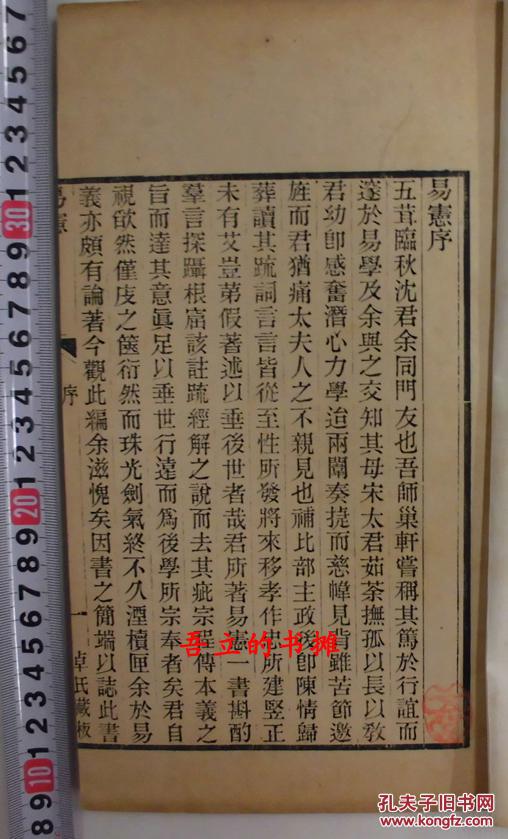 易憲序
五茸臨秋沈君余同門友也吾師巢軒嘗稱其篤於行誼而
邃於易學及余與之交知其母宋太君茹荼撫孤以長以敎
君幼卽感奮潛心力學迨兩闈奏捷而慈幃見背雖苦節邀
旌而君猶痛太夫人之不親見也補比部主政後卽陳情歸
葬讀其疏詞言言皆從至性所發將來移孝作忠所建竪正
未有艾豈第假著述以垂後世者哉君所著易憲一書斟酌
羣言探躡根窟該註疏經解之說而去其疵宗程傳本義之
旨而達其意眞足以垂世行遠而爲後學所宗奉者矣君自
視欿然僅庋之篋衍然而珠光劍氣終不久湮櫝匣余於易
義亦頗有論著今觀此編余滋愧矣因書之簡端以誌此書
易憲
序
一
卓氏藏板
吾立的书摊
8 9 10 1 2 3 4 5 6 7 8 9 20 1 2 3 4 5 6 7 8 9 30 1 2 3 4 5
孔夫子旧书网
kongfz.com